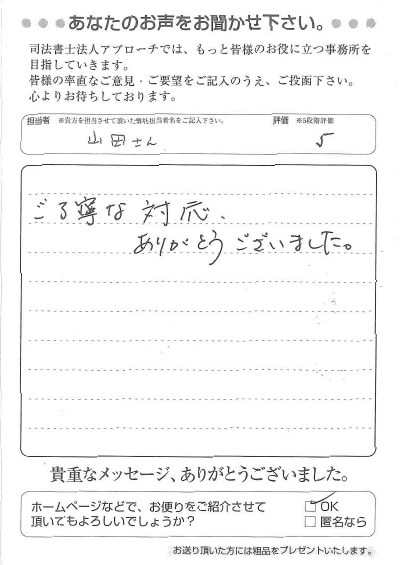 あなたのお声をお聞かせ下さい。
司法書士法人アプローチでは、もっと皆様のお役に立つ事務所を
目指していきます。
皆様の率直なご意見・ご要望をご記入のうえ、ご投函下さい。
心よりお待ちしております。
担当者 ※貴方を担当させて頂いた弊社担当者名をご記入下さい。 評価 ※5段階評価
山田さん 5
ご丁寧な対応、
ありがとうございました。
貴重なメッセージ、ありがとうございました。
ホームページなどで、お便りをご紹介させて
頂いてもよろしいでしょうか？
OK
匿名なら
お送り頂いた方には粗品をプレゼントいたします。